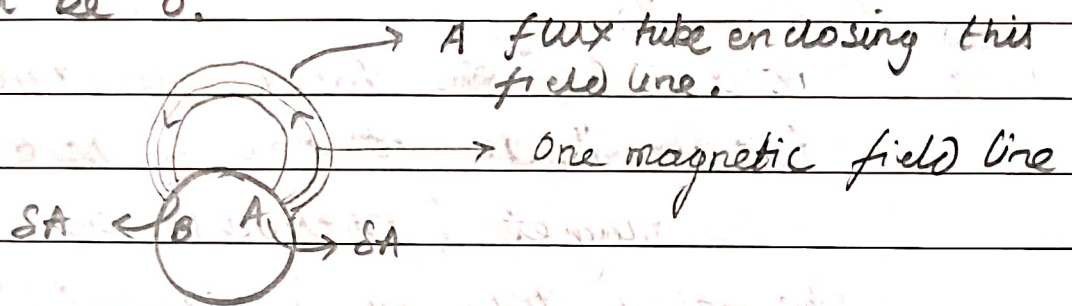 be 0.
A flux tube enclosing this
field line.
One magnetic field line
δA B A δA